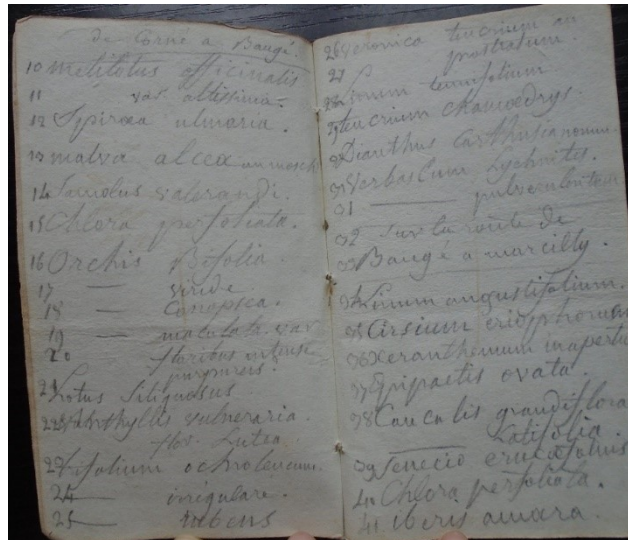 de Corné a Baugé.
10 melilotus officinalis
11 var altissima.
12 Spiræa ulmaria.
13 malva alcea an mosch
14 Samolus valerandi.
15 Chlora perfoliata.
16 Orchis Bifolia.
17 — viride
18 — Conopsea.
19 — maculata var
20 floribus intense
purpureis.
21 Lotus Siliquosus.
22 Anthyllis vulneraria
flor. Lutea.
23 Trifolium ochroleucum.
24 — irrigulare.
25 — rubens
26 Veronica teucrium an
27 prostratum
28 Linum tenuifolium
29 teucrium chamœdrys.
30 Dianthus carthusianorum.
31 Verbascum Lychnites.
31 — pulverulentum
32 Sur la route de
33 Baugé a marcilly.
34 Linum angustifolium.
35 Cirsium eriophorum
36 Xeranthemum inapertu
37 Epipactis ovata.
38 Caucalis grandiflora
— Latifolia
39 Senecio erucæfolius
40 Chlora perfoliata.
41 iberis amara.